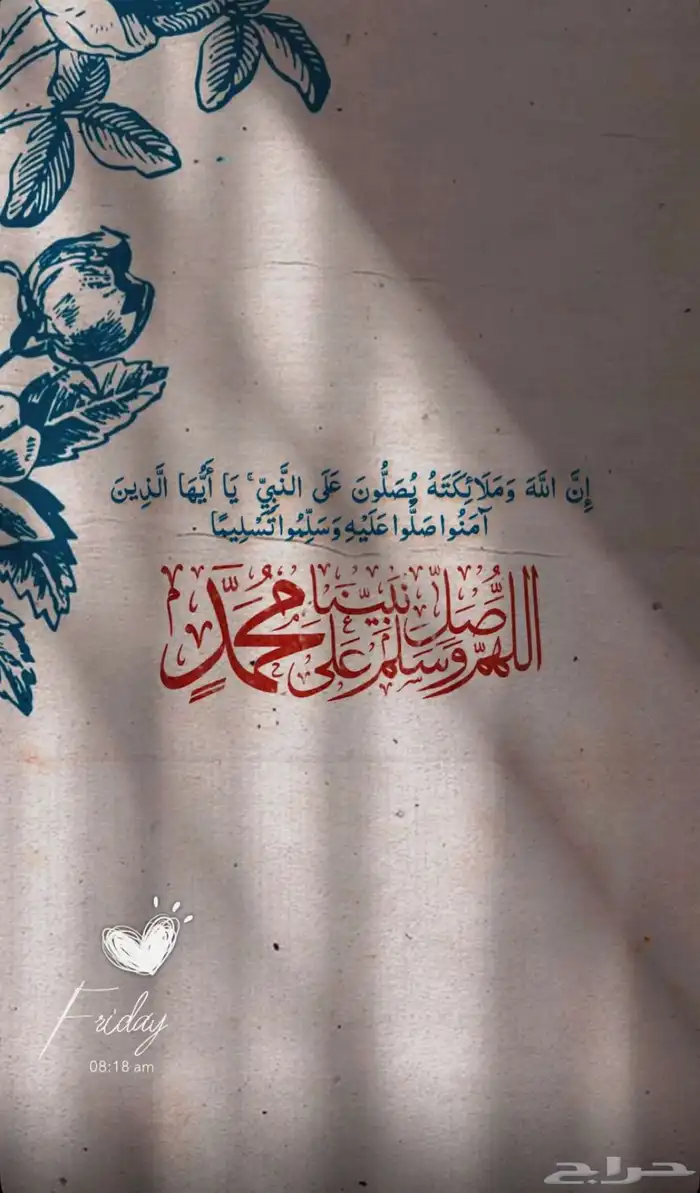 إِنَّ اللَّهَ وَمَلَائِكَتَهُ يُصَلُّونَ عَلَى النَّبِيِّ ۚ يَا أَيُّهَا الَّذِينَ
آمَنُوا صَلُّوا عَلَيْهِ وَسَلِّمُوا تَسْلِيمًا
اللهم صَلِّ وسلم على نبينا مُحمَّدٍ
Friday
08:18 am
حراج